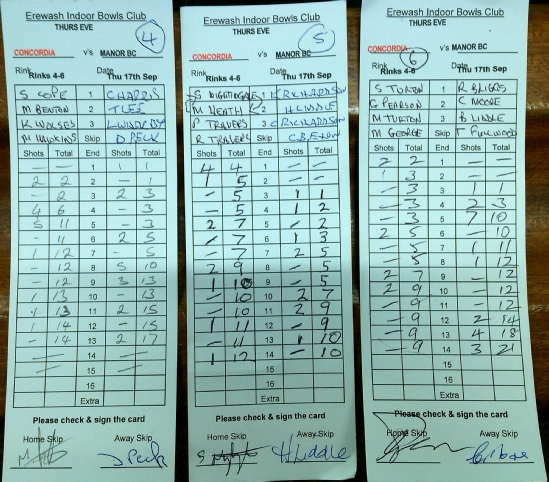 Erewash Indoor Bowls Club
THURS EVE
4
CONCORDIA v's MANOR BC
Rink Rinks 4-6 Date Thu 17th Sep
S COPE 1 C HARRIS
M BENTON 2 T LEE
3
M HAWKINS Skip D PECK
Shots Total End Shots Total
— — 1 1 1
2 2 2 — 1
— 2 3 2 3
4 6 4 — 3
5 11 5 — 3
— 11 6 2 5
1 12 7 — 5
— 12 8 5 10
— 12 9 3 13
1 13 10 — 13
— 13 11 2 15
1 14 12 — 15
— 14 13 2 17
14
15
16
Extra
Please check & sign the card
Home Skip Away Skip
D Peck
Erewash Indoor Bowls Club
THURS EVE
5
CONCORDIA v's MANOR BC
Rink Rinks 4-6 Date Thu 17th Sep
S NIGHTINGALE 1 K RICHARDSON
M HEATH 2 H LIDDLE
P TRAVERS 3 C RICHARDSON
R TRAVERS Skip
Shots Total End Shots Total
4 4 1 — —
1 5 2 — —
— 5 3 1 1
— 5 4 1 2
2 7 5 — 2
— 7 6 1 3
— 7 7 2 5
2 9 8 — 5
1 10 9 — 5
— 10 10 2 7
— 10 11 2 9
1 11 12 — 9
— 11 13 1 10
1 12 14 — 10
15
16
Extra
Please check & sign the card
Home Skip Away Skip
H Liddle
Erewash Indoor Bowls Club
THURS EVE
6
CONCORDIA v's MANOR BC
Rink Rinks 4-6 Date Thu 17th Sep
S TURTON 1 R BRIGGS
G PEARSON 2 C MOORE
M TURTON 3 B LIDDLE
M GEORGE Skip T FULLWOOD
Shots Total End Shots Total
2 2 1 — —
1 3 2 — —
— 3 3 1 1
— 3 4 2 3
— 3 5 7 10
2 5 6 — 10
— 5 7 1 11
— 5 8 1 12
2 7 9 — 12
2 9 10 — 12
— 9 11 — 12
— 9 12 2 14
— 9 13 4 18
— 9 14 3 21
15
16
Extra
Please check & sign the card
Home Skip Away Skip